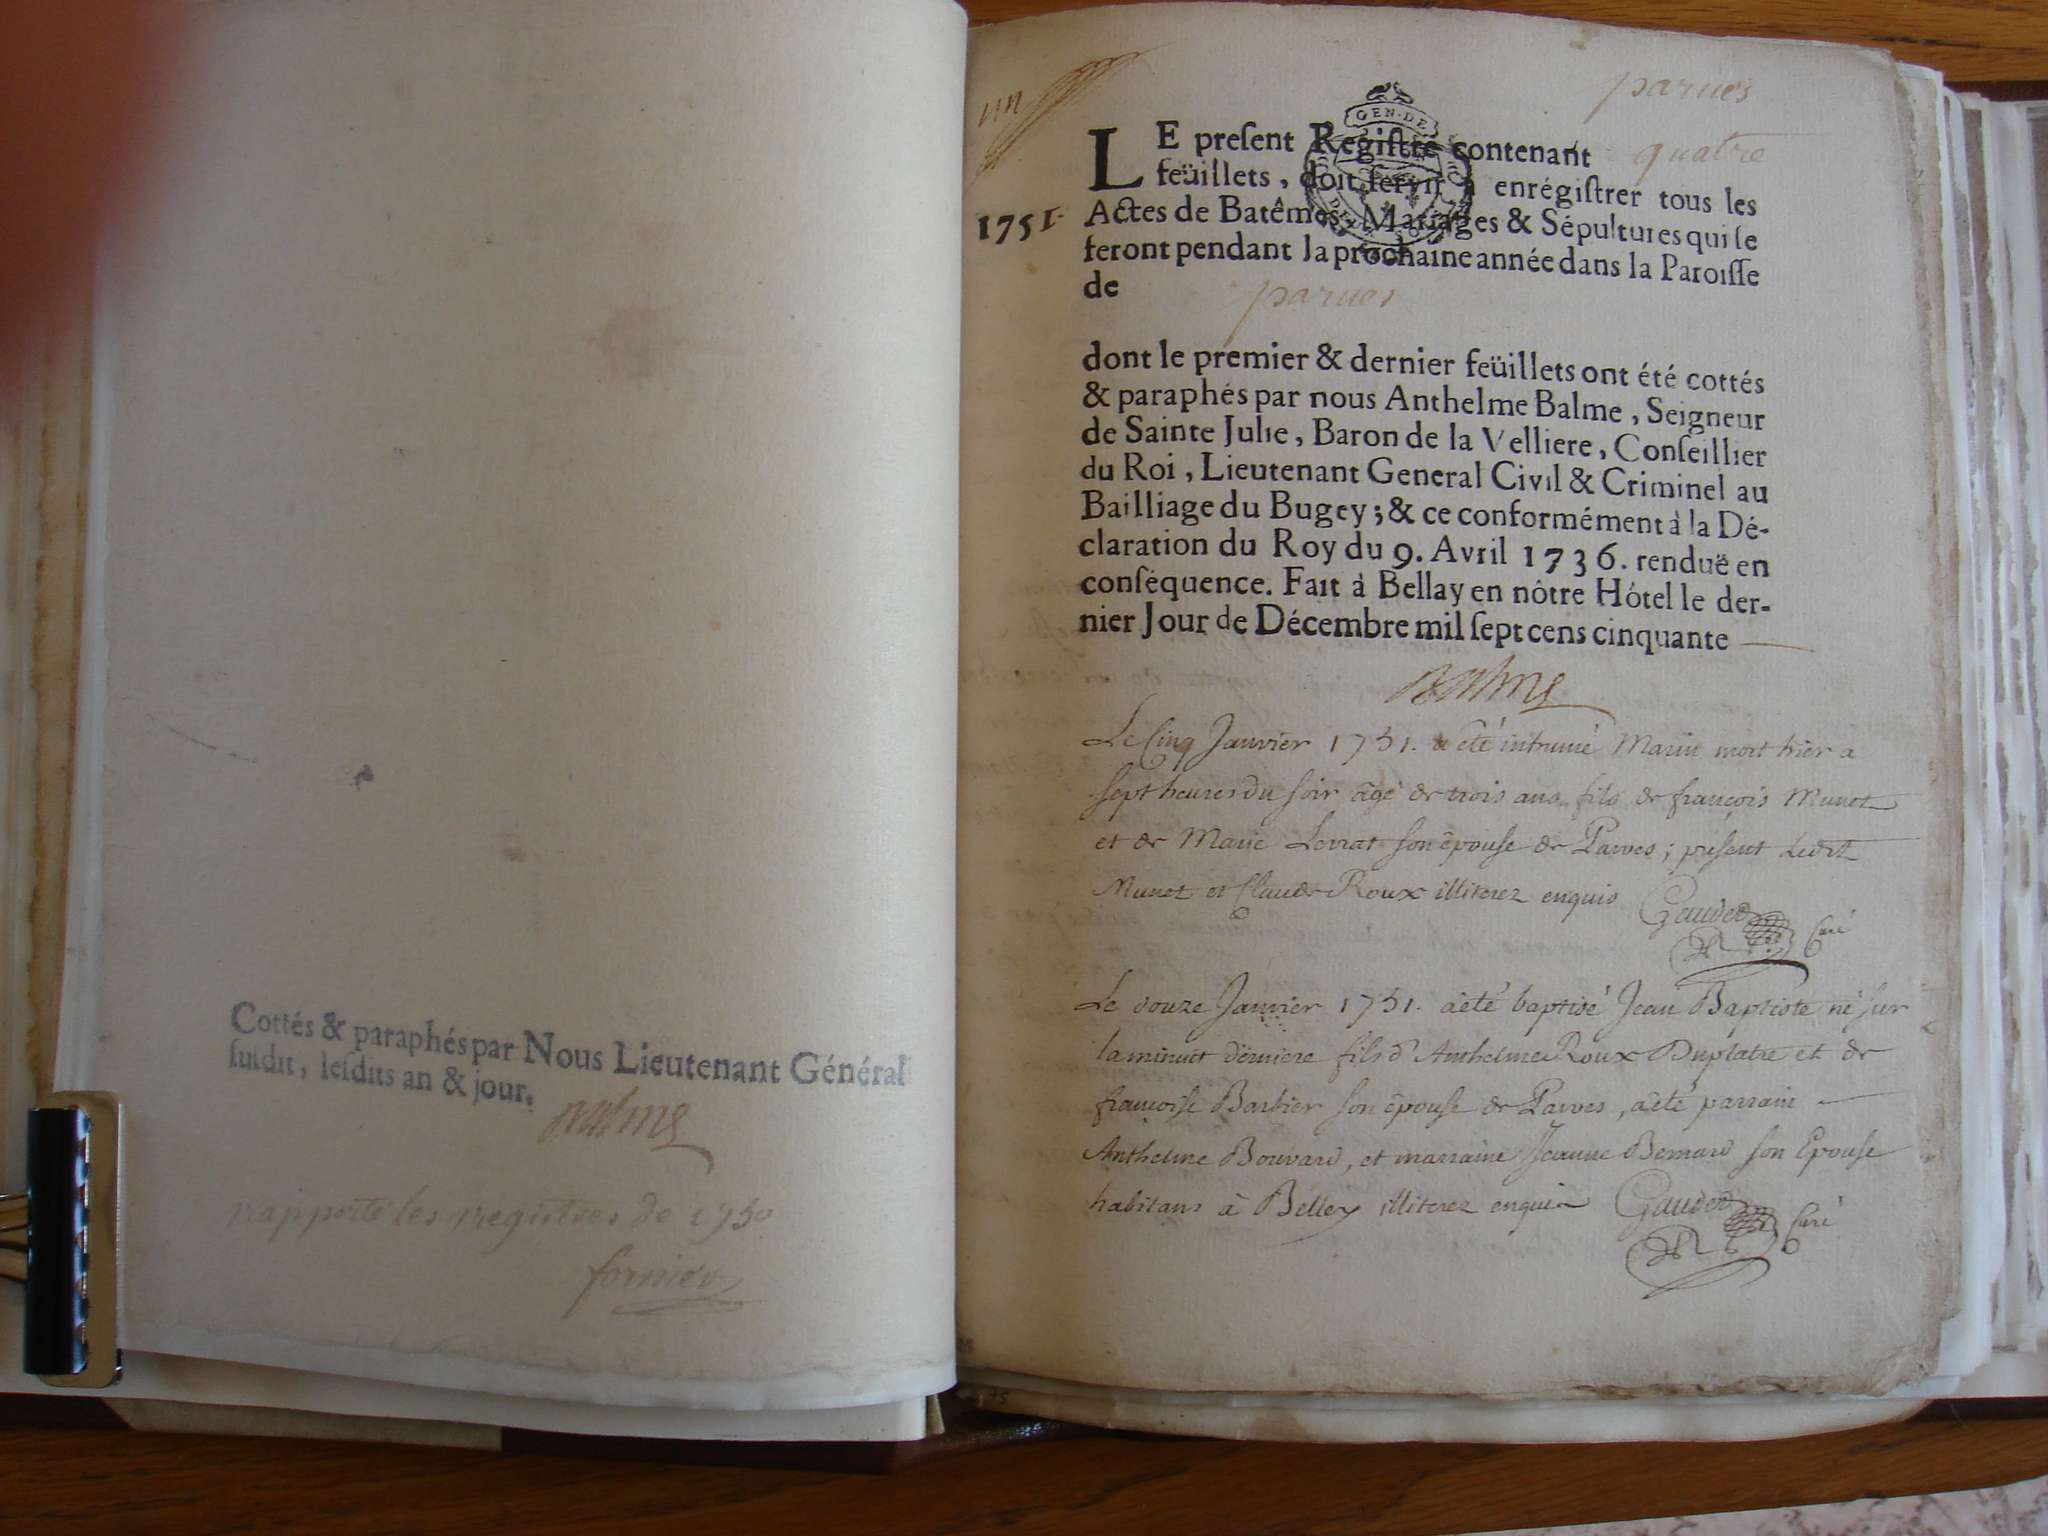 Cottés & paraphés par Nous Lieutenant Général
susdit, lesdits an & jour.
Balme
rapporté les registres de 1750
fornier
un
parves
GEN·DE
LE preſent Regiſtre contenant quatre
feüillets, doit ſervir à enrégiſtrer tous les
1751. Actes de Batêmes, Mariages & Sépultures qui ſe
feront pendant la prochaine année dans la Paroiſſe
de parves
dont le premier & dernier feüillets ont été cottés
& paraphés par nous Anthelme Balme, Seigneur
de Sainte Julie, Baron de la Velliere, Conſeillier
du Roi, Lieutenant General Civil & Criminel au
Bailliage du Bugey; & ce conformément à la Dé-
claration du Roy du 9. Avril 1736. renduë en
conſéquence. Fait à Bellay en nôtre Hôtel le der-
nier Jour de Décembre mil ſept cens cinquante
Balme
Le Cinq Janvier 1751. a été inhumé Marin mort hier a
sept heures du soir âgé de trois ans fils de françois Munet
et de Marie Levrat son épouse de Parves; present Ledit
Munet et Claude Roux illiterez enquis Gaudet
Curé
Le douze Janvier 1751. a été baptisé Jean Baptiste né sur
la minuit derniere fils d'Anthelme Roux Duplatre et de
françoise Barbier son épouse de Parves, a été parrain
Anthelme Bouvard, et marraine Jeanne Bernard son Epouse
habitans à Belley illiterez enquis Gaudet
Curé